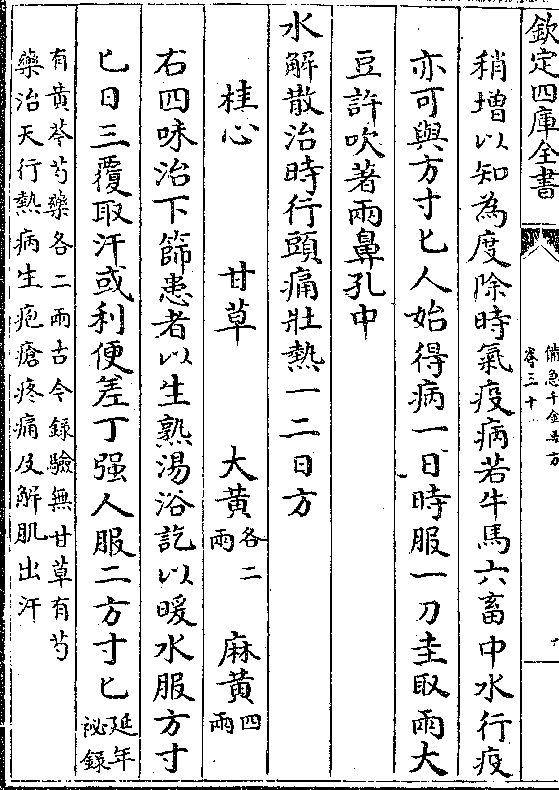 欽定四庫全書
備急千金要方
卷三十
稍增以知為度除時氣疫病若牛馬六畜中水行疫
亦可與方寸匕人始得病一日時服一刀圭取兩大
豆許吹著兩鼻孔中
水解散治時行頭痛壯熱一二日方
桂心 甘草 大黃各二兩 麻黃四兩
右四味治下篩患者以生熟湯浴訖以暖水服方寸
匕日三覆取汗或利便差丁强人服二方寸匕延年祕錄
有黃芩芍藥各二兩古今錄驗無甘草有芍
藥治天行熱病生疱瘡疼痛及解肌出汗